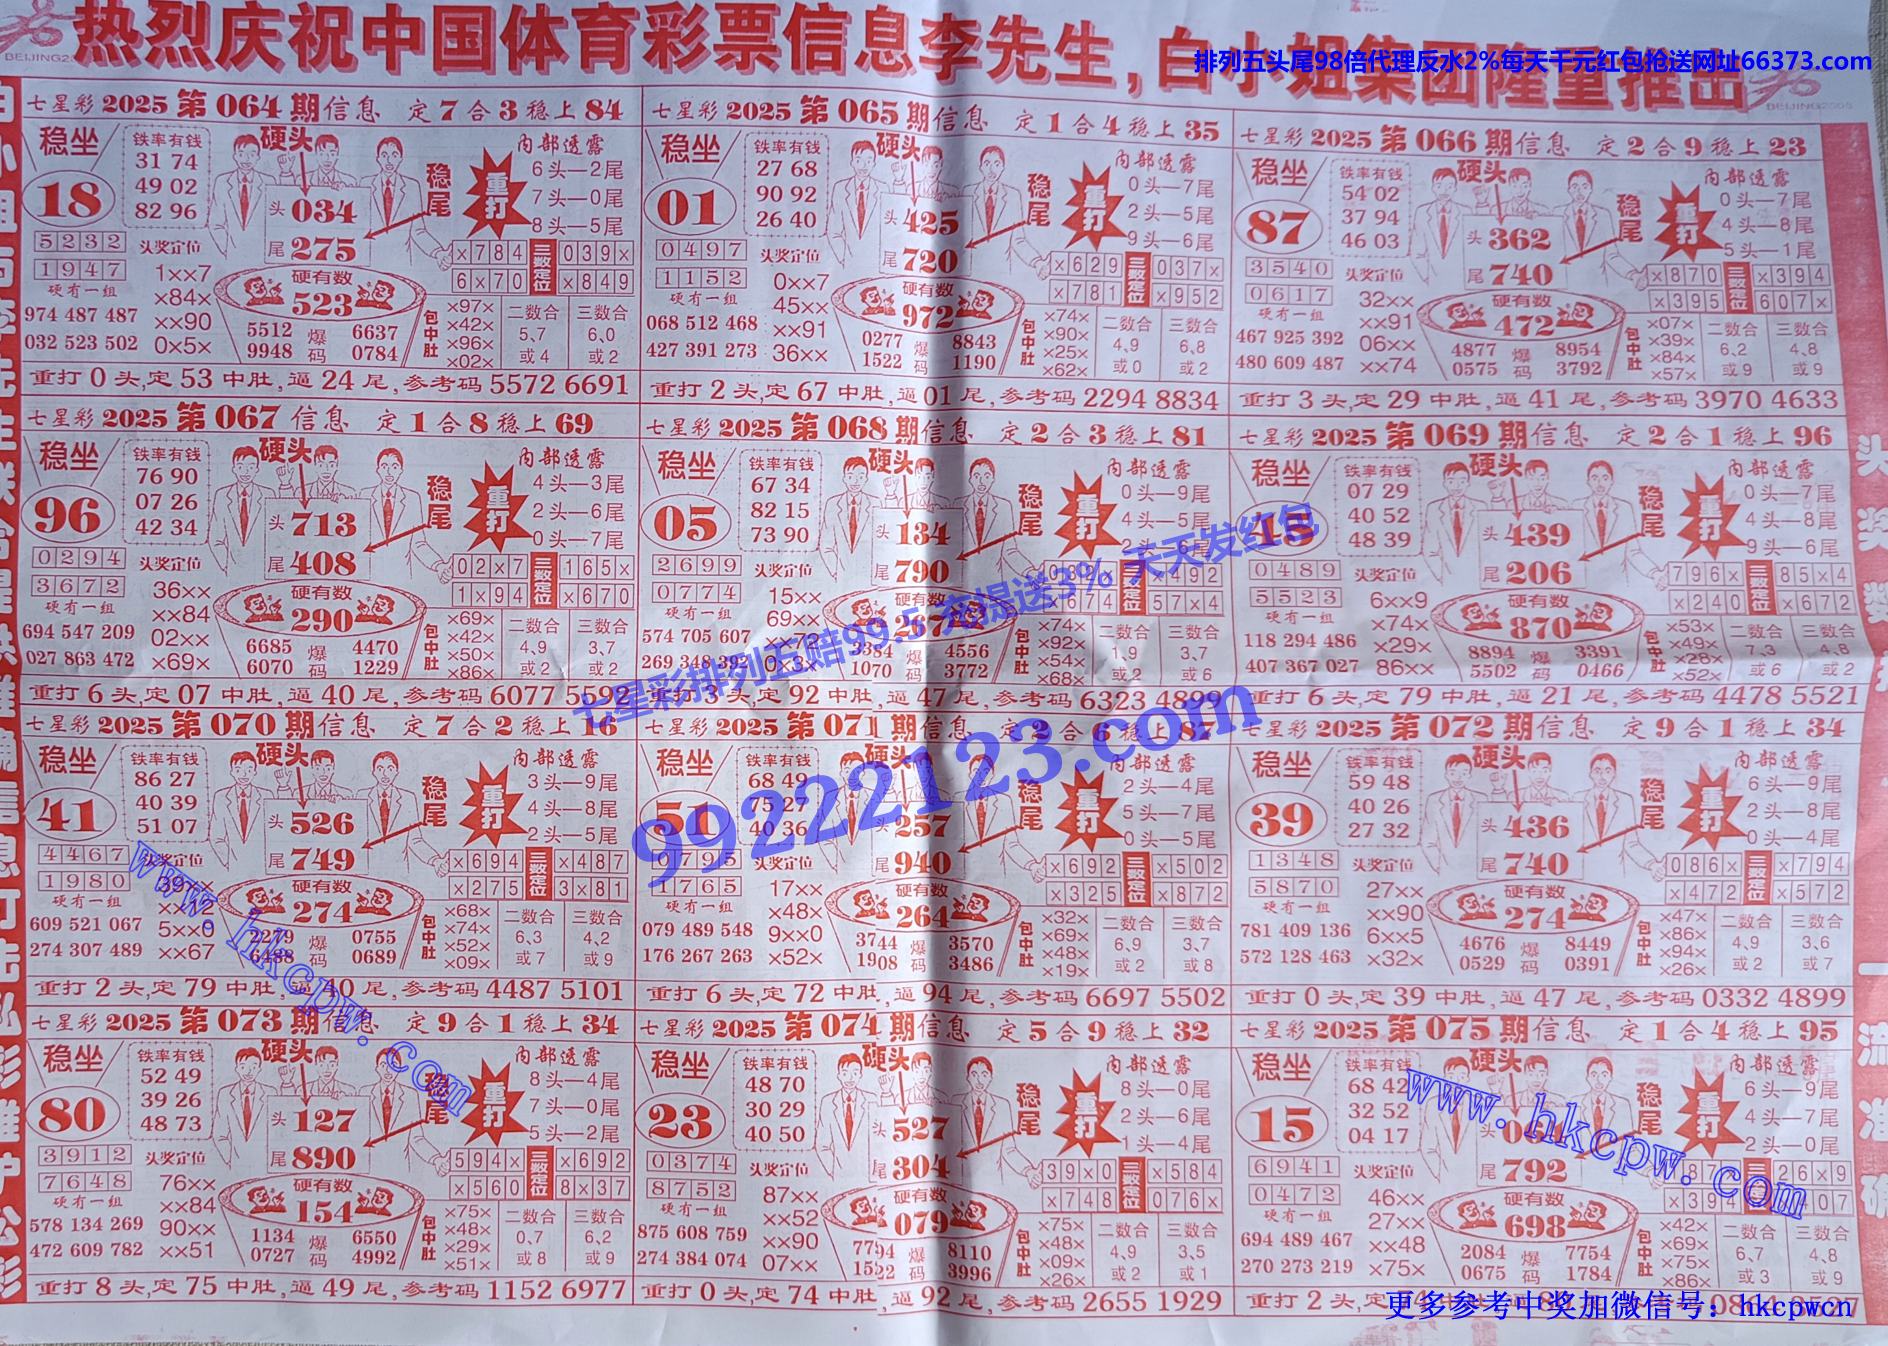 热烈庆祝中国体育彩票信息李先生,白小姐集团隆重推出
排列五头尾98倍代理反水2%每天千元红包抢送网址66373.com
七星彩 2025 第 064 期信息 定 7 合 3 稳上 84
稳坐 18
铁率有钱
31 74
49 02
82 96
硬头
头 034
尾 275
稳尾
重打
内部透露
6头—2尾
7头—0尾
8头—5尾
5232
1947
头奖定位
1××7
×84×
××90
0×5×
硬有一组
974 487 487
032 523 502
硬有数
523
5512 爆 6637
9948 码 0784
×784 三数定位 039×
6×70 ×849
包中肚
×97×
×42×
×96×
×02×
二数合
5,7
或4
三数合
6,0
或2
重打 0 头,定 53 中肚,逼 24 尾,参考码 5572 6691
七星彩 2025 第 065 期信息 定 1 合 4 稳上 35
稳坐 01
铁率有钱
27 68
90 92
26 40
硬头
头 425
尾 720
稳尾
重打
内部透露
0头—7尾
2头—5尾
9头—6尾
0497
1152
头奖定位
0××7
45××
××91
36××
硬有一组
068 512 468
427 391 273
硬有数
972
0277 爆 8843
1522 码 1190
×629 三数定位 037×
×781 ×952
包中肚
×74×
×90×
×25×
×62×
二数合
4,9
或0
三数合
6,8
或2
重打 2 头,定 67 中肚,逼 01 尾,参考码 2294 8834
七星彩 2025 第 066 期信息 定 2 合 9 稳上 23
稳坐 87
铁率有钱
54 02
37 94
46 03
硬头
头 362
尾 740
稳尾
重打
内部透露
0头—7尾
4头—8尾
5头—1尾
3540
0617
头奖定位
32××
××91
06××
××74
硬有一组
467 925 392
480 609 487
硬有数
472
4877 爆 8954
0575 码 3792
×870 三数定位 ×394
×395 607×
包中肚
×07×
×39×
×84×
×57×
二数合
6,2
或9
三数合
4,8
或9
重打 3 头,定 29 中肚,逼 41 尾,参考码 3970 4633
七星彩 2025 第 067 信息 定 1 合 8 稳上 69
稳坐 96
铁率有钱
76 90
07 26
42 34
硬头
头 713
尾 408
稳尾
重打
内部透露
4头—3尾
2头—6尾
0头—7尾
0294
3672
头奖定位
36××
××84
02××
×69×
硬有一组
694 547 209
027 863 472
硬有数
290
6685 爆 4470
6070 码 1229
02×7 三数定位 165×
1×94 ×670
包中肚
×69×
×42×
×50×
×86×
二数合
4,9
或2
三数合
3,7
或2
重打 6 头,定 07 中肚,逼 40 尾,参考码 6077 5592
七星彩 2025 第 068 期信息 定 2 合 3 稳上 81
稳坐 05
铁率有钱
67 34
82 15
73 90
硬头
头 134
尾 790
稳尾
重打
内部透露
0头—9尾
4头—5尾
2699
0774
头奖定位
15××
69××
0×3×
硬有一组
574 705 607
269 348 392
硬有数
267
3384 爆 4556
1070 码 3772
×674 57×4
包中肚
×74×
×92×
×54×
×68×
二数合
1,9
或2
三数合
3,7
或6
重打 3 头,定 92 中肚,逼 47 尾,参考码 6323 4899
七星彩 2025 第 069 期信息 定 2 合 1 稳上 96
稳坐 48
铁率有钱
07 29
40 52
48 39
硬头
头 439
尾 206
稳尾
重打
内部透露
0头—7尾
4头—8尾
9头—6尾
0489
5523
头奖定位
6××9
×74×
×29×
86××
硬有一组
118 294 486
407 367 027
硬有数
870
8894 爆 3391
5502 码 0466
796× 三数定位 85×4
×240 ×672
包中肚
×53×
×49×
×28×
×52×
二数合
7,3
或6
三数合
4,8
或2
重打 6 头,定 79 中肚,逼 21 尾,参考码 4478 5521
七星彩 2025 第 070 期信息 定 7 合 2 稳上 16
稳坐 41
铁率有钱
86 27
40 39
51 07
硬头
头 526
尾 749
稳尾
重打
内部透露
3头—9尾
4头—8尾
2头—5尾
4467
1980
头奖定位
39××
5××0
××67
硬有一组
609 521 067
274 307 489
硬有数
274
2279 爆 0755
6488 码 0689
×694 三数定位 ×487
×275 3×81
包中肚
×68×
×74×
×52×
×09×
二数合
6,3
或7
三数合
4,2
或9
重打 2 头,定 79 中肚,逼 40 尾,参考码 4487 5101
七星彩 2025 第 071 期信息 定 2 合 6 稳上 87
稳坐 51
铁率有钱
68 49
75 27
40 36
硬头
头 257
尾 940
稳尾
重打
内部透露
2头—4尾
5头—7尾
0头—5尾
0795
1765
头奖定位
17××
×48×
9××0
×52×
硬有一组
079 489 548
176 267 263
硬有数
264
3744 爆 3570
1908 码 3486
×692 三数定位 ×502
×325 ×872
包中肚
×32×
×69×
×48×
×19×
二数合
6,9
或2
三数合
3,7
或8
重打 6 头,定 72 中肚,逼 94 尾,参考码 6697 5502
七星彩 2025 第 072 期信息 定 9 合 1 稳上 34
稳坐 39
铁率有钱
59 48
40 26
27 32
硬头
头 436
尾 740
稳尾
重打
内部透露
6头—9尾
2头—8尾
0头—4尾
1348
5870
头奖定位
27××
××90
6××5
×32×
硬有一组
781 409 136
572 128 463
硬有数
274
4676 爆 8449
0529 码 0391
086× 三数定位 ×794
×472 ×572
包中肚
×47×
×86×
×94×
×26×
二数合
4,9
或2
三数合
3,6
或7
重打 0 头,定 39 中肚,逼 47 尾,参考码 0332 4899
七星彩 2025 第 073 期信息 定 9 合 1 稳上 34
稳坐 80
铁率有钱
52 49
39 26
48 73
硬头
头 127
尾 890
稳尾
重打
内部透露
8头—4尾
7头—0尾
5头—2尾
3912
7648
头奖定位
76××
××84
90××
××51
硬有一组
578 134 269
472 609 782
硬有数
154
1134 爆 6550
0727 码 4992
594× 三数定位 ×692
×560 8×37
包中肚
×75×
×48×
×29×
×51×
二数合
0,7
或8
三数合
6,2
或9
重打 8 头,定 75 中肚,逼 49 尾,参考码 1152 6977
七星彩 2025 第 074 期信息 定 5 合 9 稳上 32
稳坐 23
铁率有钱
48 70
30 29
40 50
硬头
头 527
尾 304
稳尾
重打
内部透露
8头—0尾
2头—6尾
1头—4尾
0374
8752
头奖定位
87××
××52
××90
07××
硬有一组
875 608 759
274 384 074
硬有数
079
爆 8110
码 3996
39×0 三数定位 ×584
×748 076×
包中肚
×75×
×48×
×09×
×26×
二数合
4,9
或2
三数合
3,5
或1
重打 0 头,定 74 中肚,逼 92 尾,参考码 2655 1929
七星彩 2025 第 075 期信息 定 1 合 4 稳上 95
稳坐 15
铁率有钱
68 42
32 52
04 17
硬头
尾 792
重打
内部透露
6头—9尾
4头—7尾
2头—0尾
6941
0472
头奖定位
46××
27××
××48
×75×
硬有一组
694 489 467
270 273 219
硬有数
698
2084 爆 7754
0675 码 1784
26×9
包中肚
×42×
×69×
×75×
×86×
二数合
6,7
或3
三数合
4,8
或9
重打 2 头,定
七星彩排列五赔99.5 充提送3% 天天发红包
99222123.com
www.hkcpw.com
www.hkcpw.com
更多参考中奖加微信号: hkcpwcn